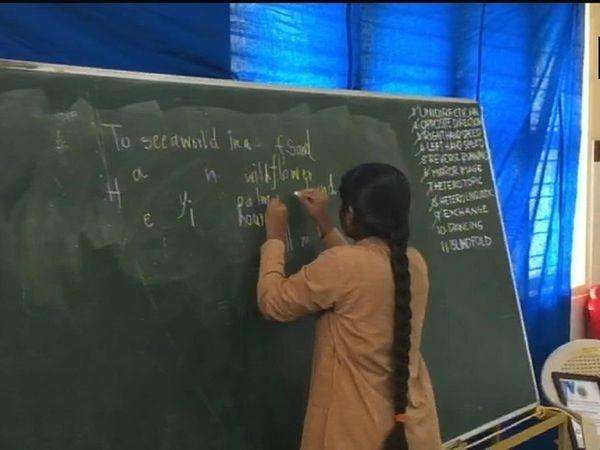 To see a world in a f Sand
a n wildflower
H yi palm and
e i hour
m
1 UNIDIRECTION
2 OPPOSITE DIRECTION
3 RIGHT HAND SPEED
4 LEFT HAND SPEED
5 REVERSE RUNNING
6 MIRROR IMAGE
7 HETEROTOPIC
8 HETERO LINGUISTIC
9 EXCHANGE
10 DANCING
11 BLINDFOLD